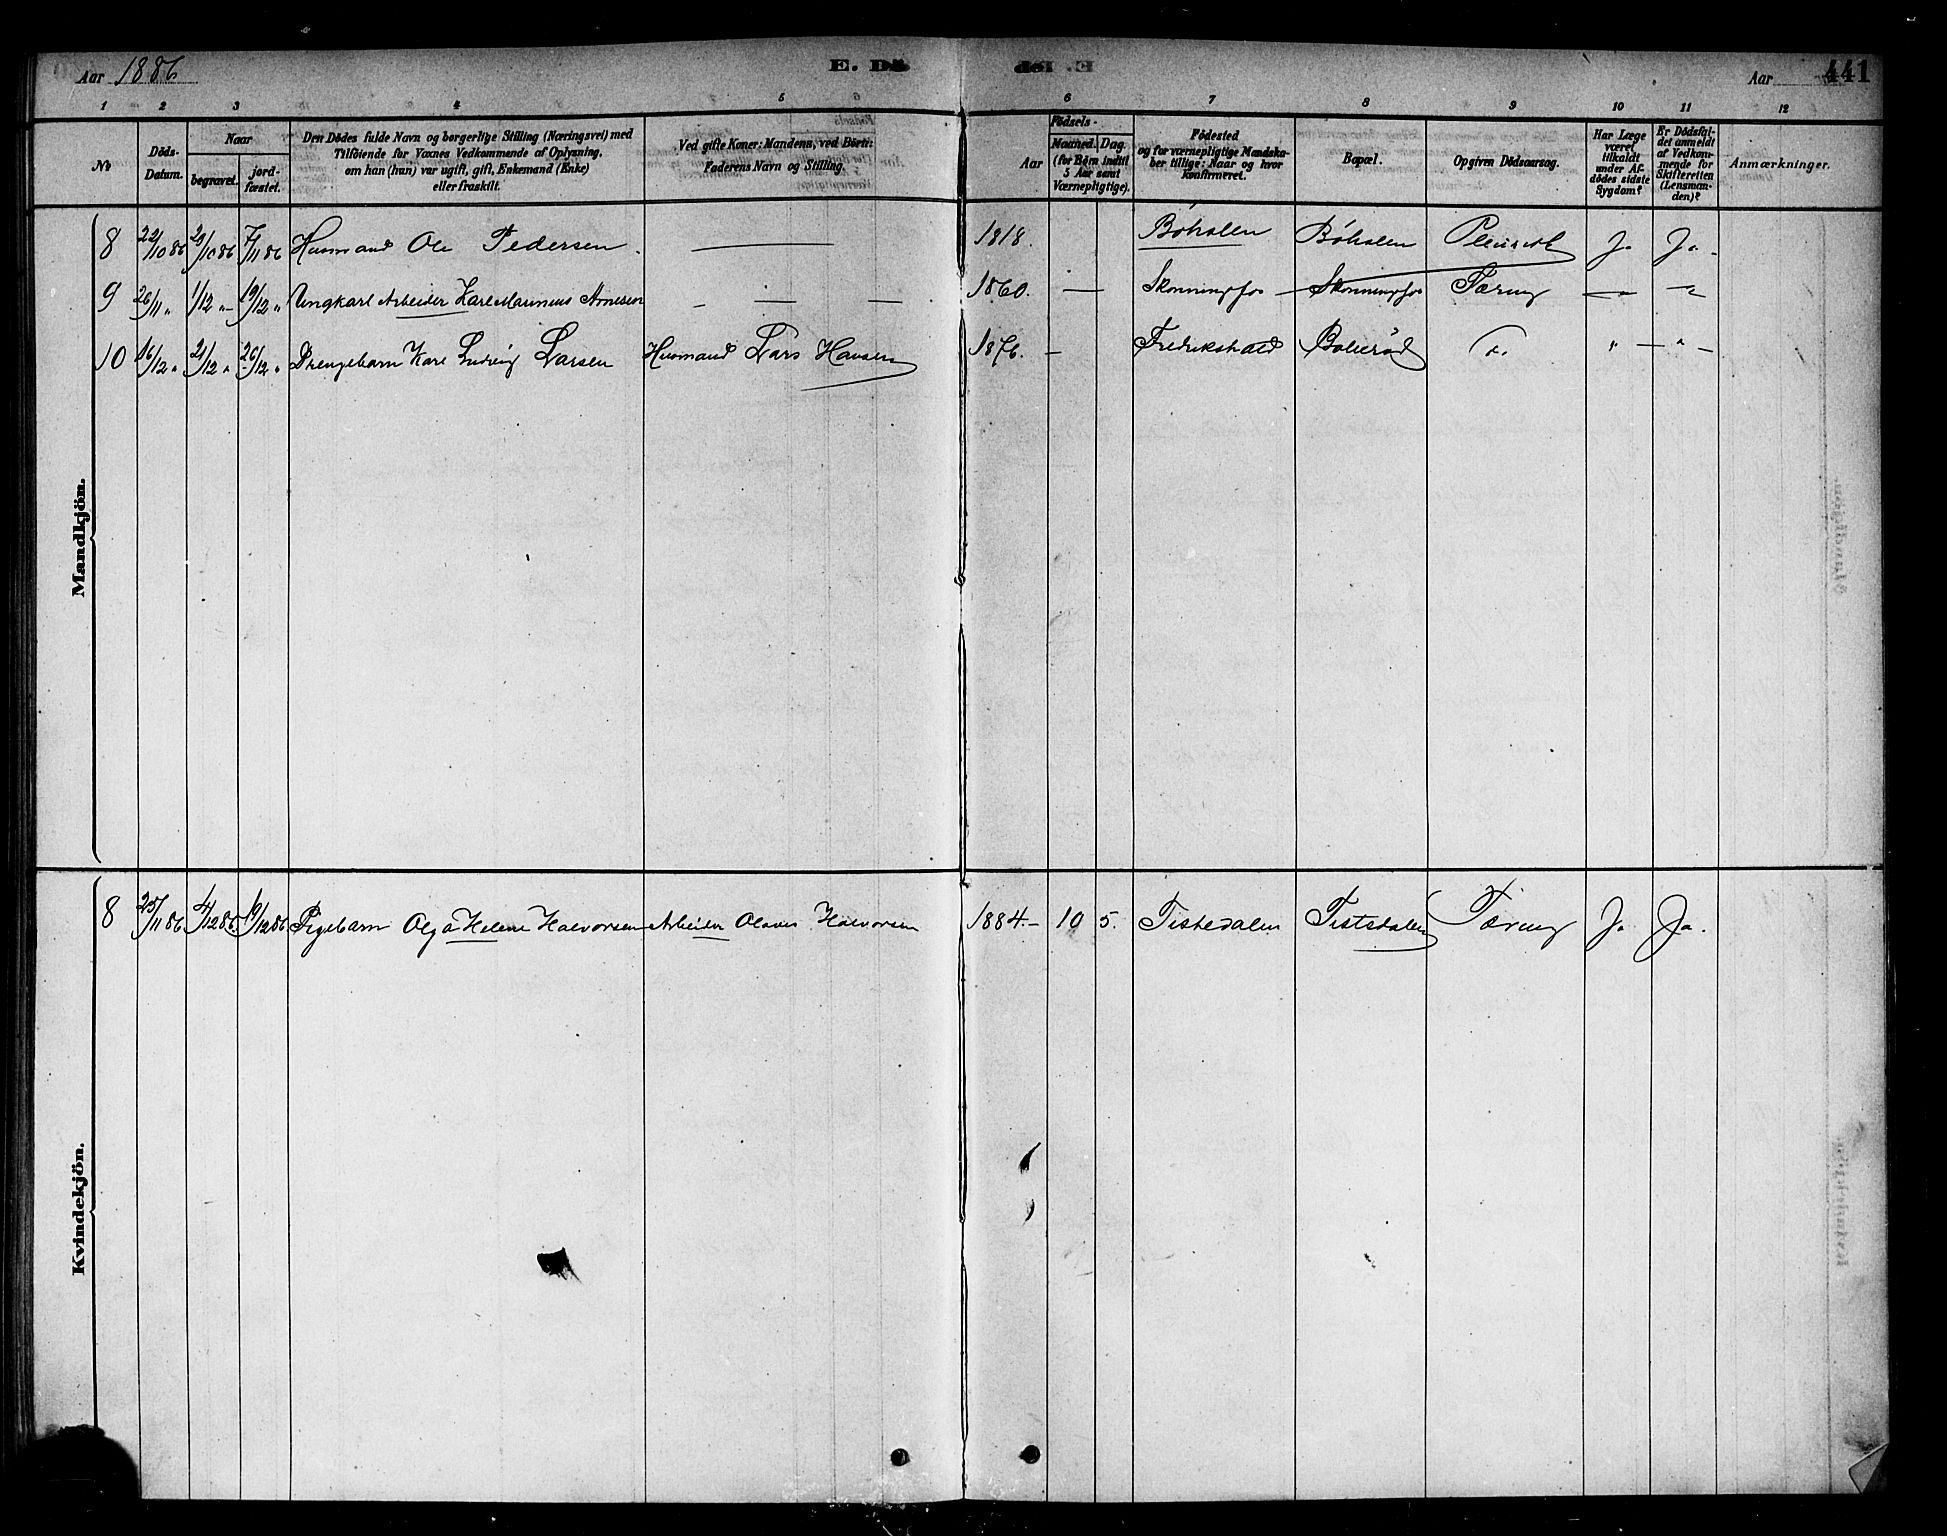 Aar 1886 E. Dö del .E Aar 441
1 2 3 4 5 6 7 8 9 10 11 12
No
Döds-Datum.
Naar
begravet.
jord-fæstet.
Den Dödes fulde Navn og borgerlige Stilling (Næringsvei) med
Tilföiende for Voxnes Vedkommende af Oplysning,
om han (hun) var ugift, gift, Enkemand (Enke)
eller fraskilt.
Ved gifte Koner: Mandens, ved Börn:
Faderens Navn og Stilling.
Födsels-
Aar
Maaned. Dag.
(for Børn indtil
5 Aar samt
Værnepligtige).
Födested
og for værnepligtige Mandska-
ber tillige: Naar og hvor
konfirmeret.
Bopæl.
Opgiven Dödsaarsag.
Har Læge
været
tilkaldt
under Af-
dödes sidste
Sygdom?
Er Dödsfal-
det anmeldt
af Vedkom-
mende for
Skifteretten
(Lensman-
den)?
Anmærkninger.
Mandkjön.
8 22/10 86 29/10 86 7/11 86 Husmand Ole Pedersen. — 1818. Böhalen Böhalen Ja Ja.
9 26/11 " 1/12 " 19/12 " Ungkarl Arbeider Karl Marinius Arnesen — — — 1860. — Skonningfos — Skonningfos Tæring — " — "
10 16/12 " 21/12 " 26/12 " Drengebarn Karl Ludvig Larsen Husmand Lars Hansen 1876. — Fredrikshald " — " —
Kvindekjön.
8 25/11 86 4/12 86. 19/12 86 Pigebarn Olga Helene Halvorsen Arbeider Olaves Halvorsen 1884. — 10 5. Tistedalen Tistedalen Tæring Ja Ja.